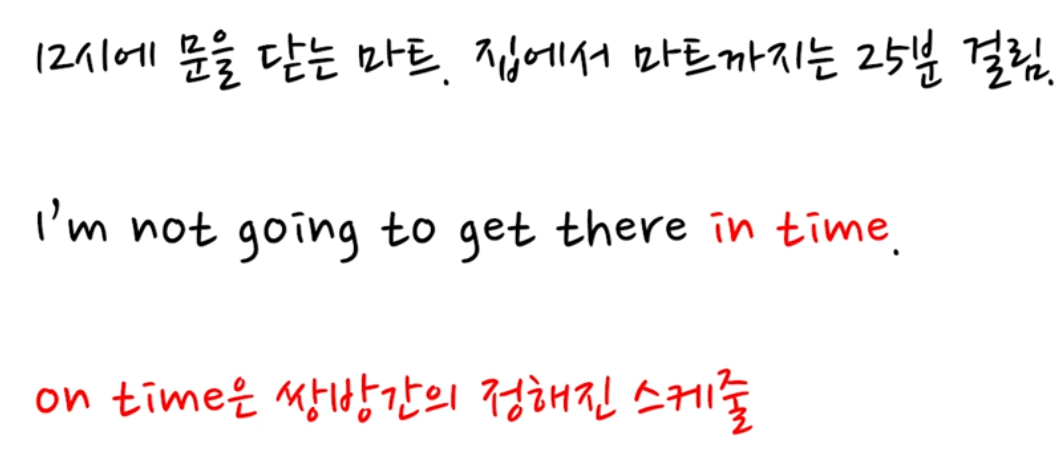 12시에 문을 닫는 마트. 집에서 마트까지는 25분 걸림.
I'm not going to get there in time.
on time은 쌍방간의 정해진 스케줄